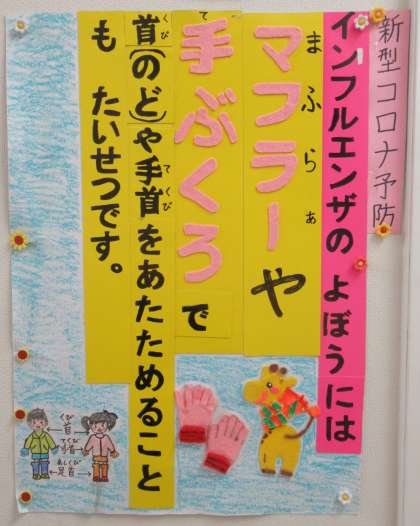 新型コロナ予防
インフルエンザの よぼうには
マフラーや
まふらぁ
手ぶくろで
て
首(のど)や手首をあたためること
くび
てくび
も たいせつです。
くび
首
てくび
手首
あしくび
足首